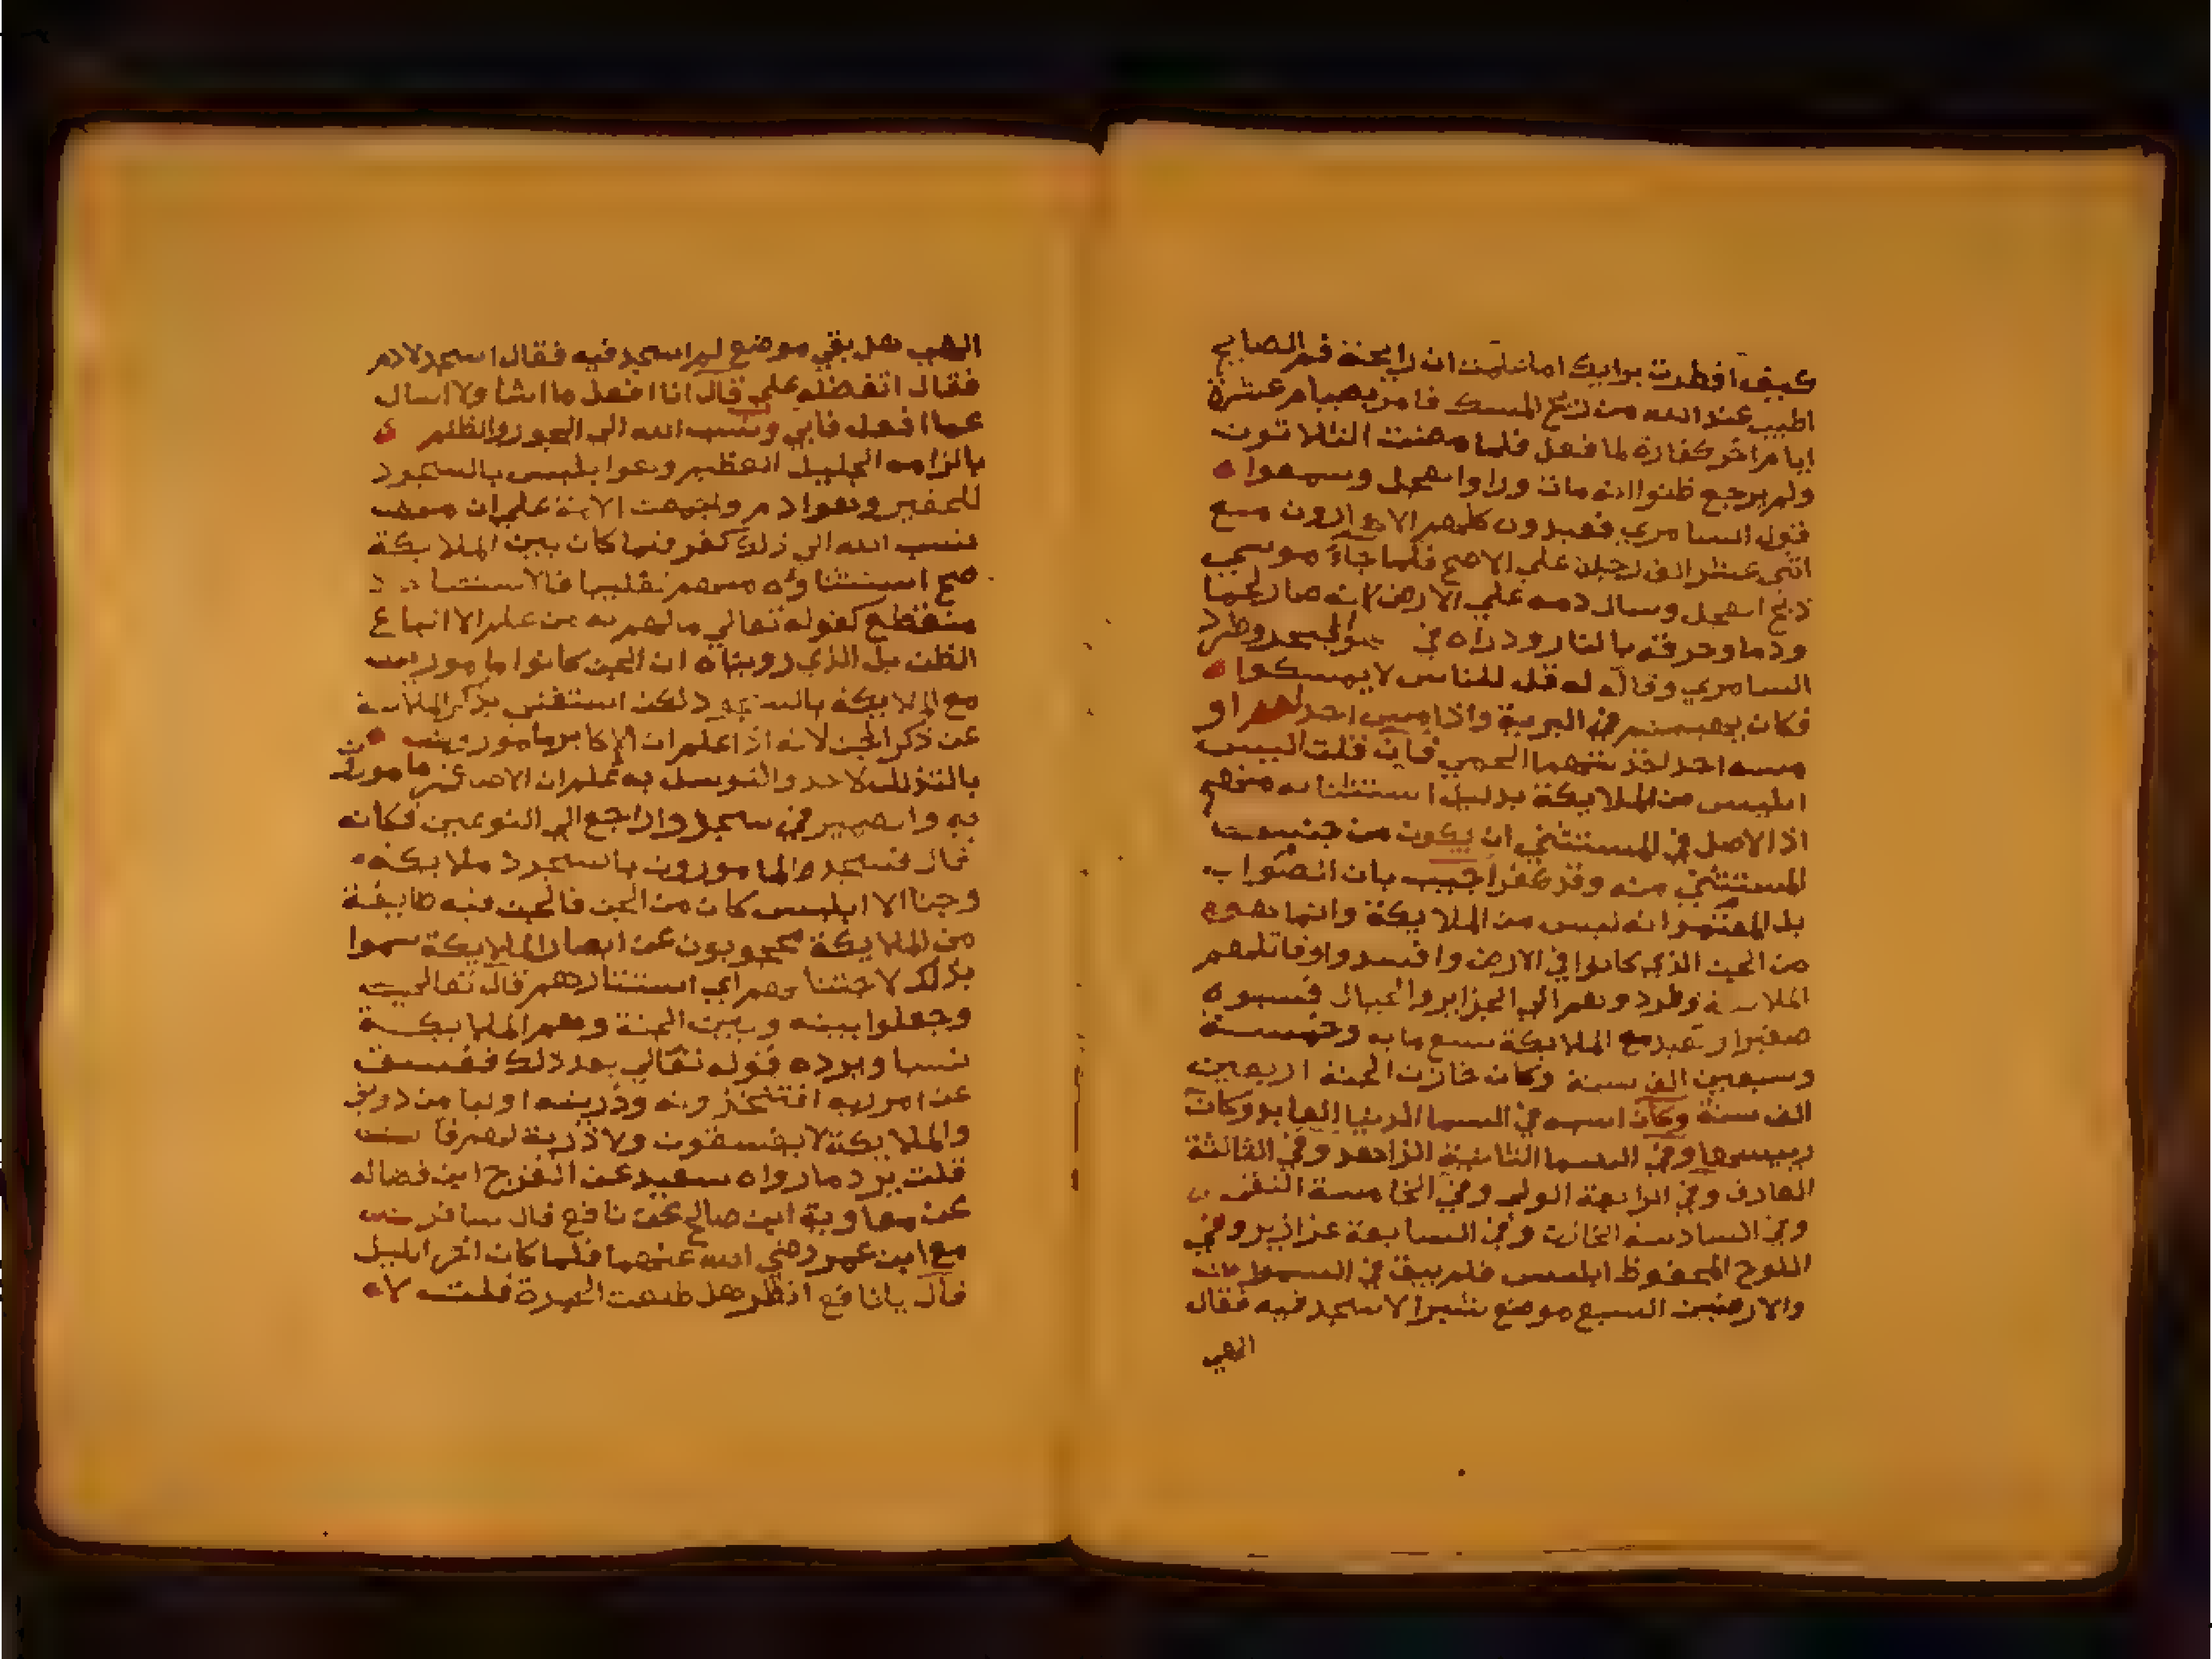 كيف افطرت برايك اما علمت ان رايحة فم الصايم
اطيب عند الله من ريح المسك فامر بصيام عشرة
ايام اخر كفارة لما فعل فلما مضت الثلاثون
ولم يرجع ظنوا انه مات وراوا العجل وسمعوا
قول السامري فعبدوه كلهم الا هارون مع
اثنى عشر الف رجل على الاصح فلما جاء موسي
ذبح العجل وسال دمه علي الارض لانه صار لحما
ودما وحرقه بالنار وذراه في البحر وطرد
السامري وقال له قل للناس لا يمسكوا
فكان يهيم في البرية واذا مس احد او
مسه احد اخذتهما الحمي فان قلت اليس
ابليس من الملايكة بدليل استثنايه منهم
اذ الاصل في المستثني ان يكون من جنس
المستثني منه وقد كفر اجيب بان الصواب
بل المعتمد انه ليس من الملايكة وانما هو
من الجن الذي كانوا في الارض وافسدوا وقاتلهم
الملايكة وطردوهم الي الجزاير والجبال فسبوه
صغيرا وتعبد مع الملايكة سبع مايه وخمسة
وسبعين الف سنة وكان خازن الجنة اربعين
الف سنة وكان اسمه في السما الدنيا العابد وكان
رييسها وفي السما الثانية الزاهد وفي الثالثة
العارف وفي الرابعة الولي وفي الخامسة التقي
وفي السادسة الخازن وفي السابعة عزازير وفي
اللوح المحفوظ ابليس فلم يبق في السموات
والارضين السبع موضع شبرا الا سجد فيه فقال
الهي
الهي هل بقي موضع لم اسجد فيه فقال اسجد لادم
فقال اتفضله علي قال انا افعل ما اشا ولا اسال
عما افعل فابي ونسب الله الي الجور والظلم
بالزامه الجليل العظيم وهو ابليس بالسجود
للحقير وهو ادم واجمعت الامة علي ان من
نسب الله الي ذلك كفر ولما كان بين الملايكة
صح استثناؤه منهم تغليبا فالاستثنا
منقطع كقوله تعالي ما لهم به من علم الا اتباع
الظن بل الذي رويناه ان الجن كانوا مامورين
مع الملايكة بالسجود لكن استغني بذكر الملايكة
عن ذكر الجن لانه اذا علم ان الاكابر مامورين
بالتذلل لاحد والتوسل به علم ان الاصاغر مامورون
به والضمير في سجدوا راجع الي النوعين فكانه
قال فسجد المامورون بالسجود ملايكة
وجنا الا ابليس كان من الجن فالجن فيه طايفة
من الملايكة محجوبون عن ابصار الملايكة سموا
بذلك لاجتنانهم اي استتارهم قال تعالي
وجعلوا بينه وبين الجنة وهم الملايكة
نسبا ويرده قوله تعالي بعد ذلك ففسق
عن امر ربه افتتخذونه وذريته اوليا من دوني
والملايكة لا يفسقون ولا ذرية لهم فان
قلت يرد ما رواه سعيد عن الفرج ابن فضاله
عن معاوية ابن صالح عن نافع قال سافرت
مع ابن عمر رضي الله عنهما فلما كان اخر الليل
قال يا نافع انظر هل طلعت الحمرة قلت لا